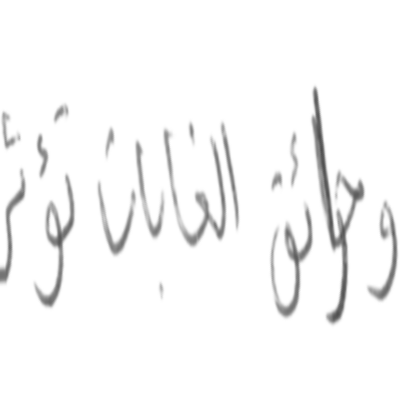 وحرائق الغابات تؤثر